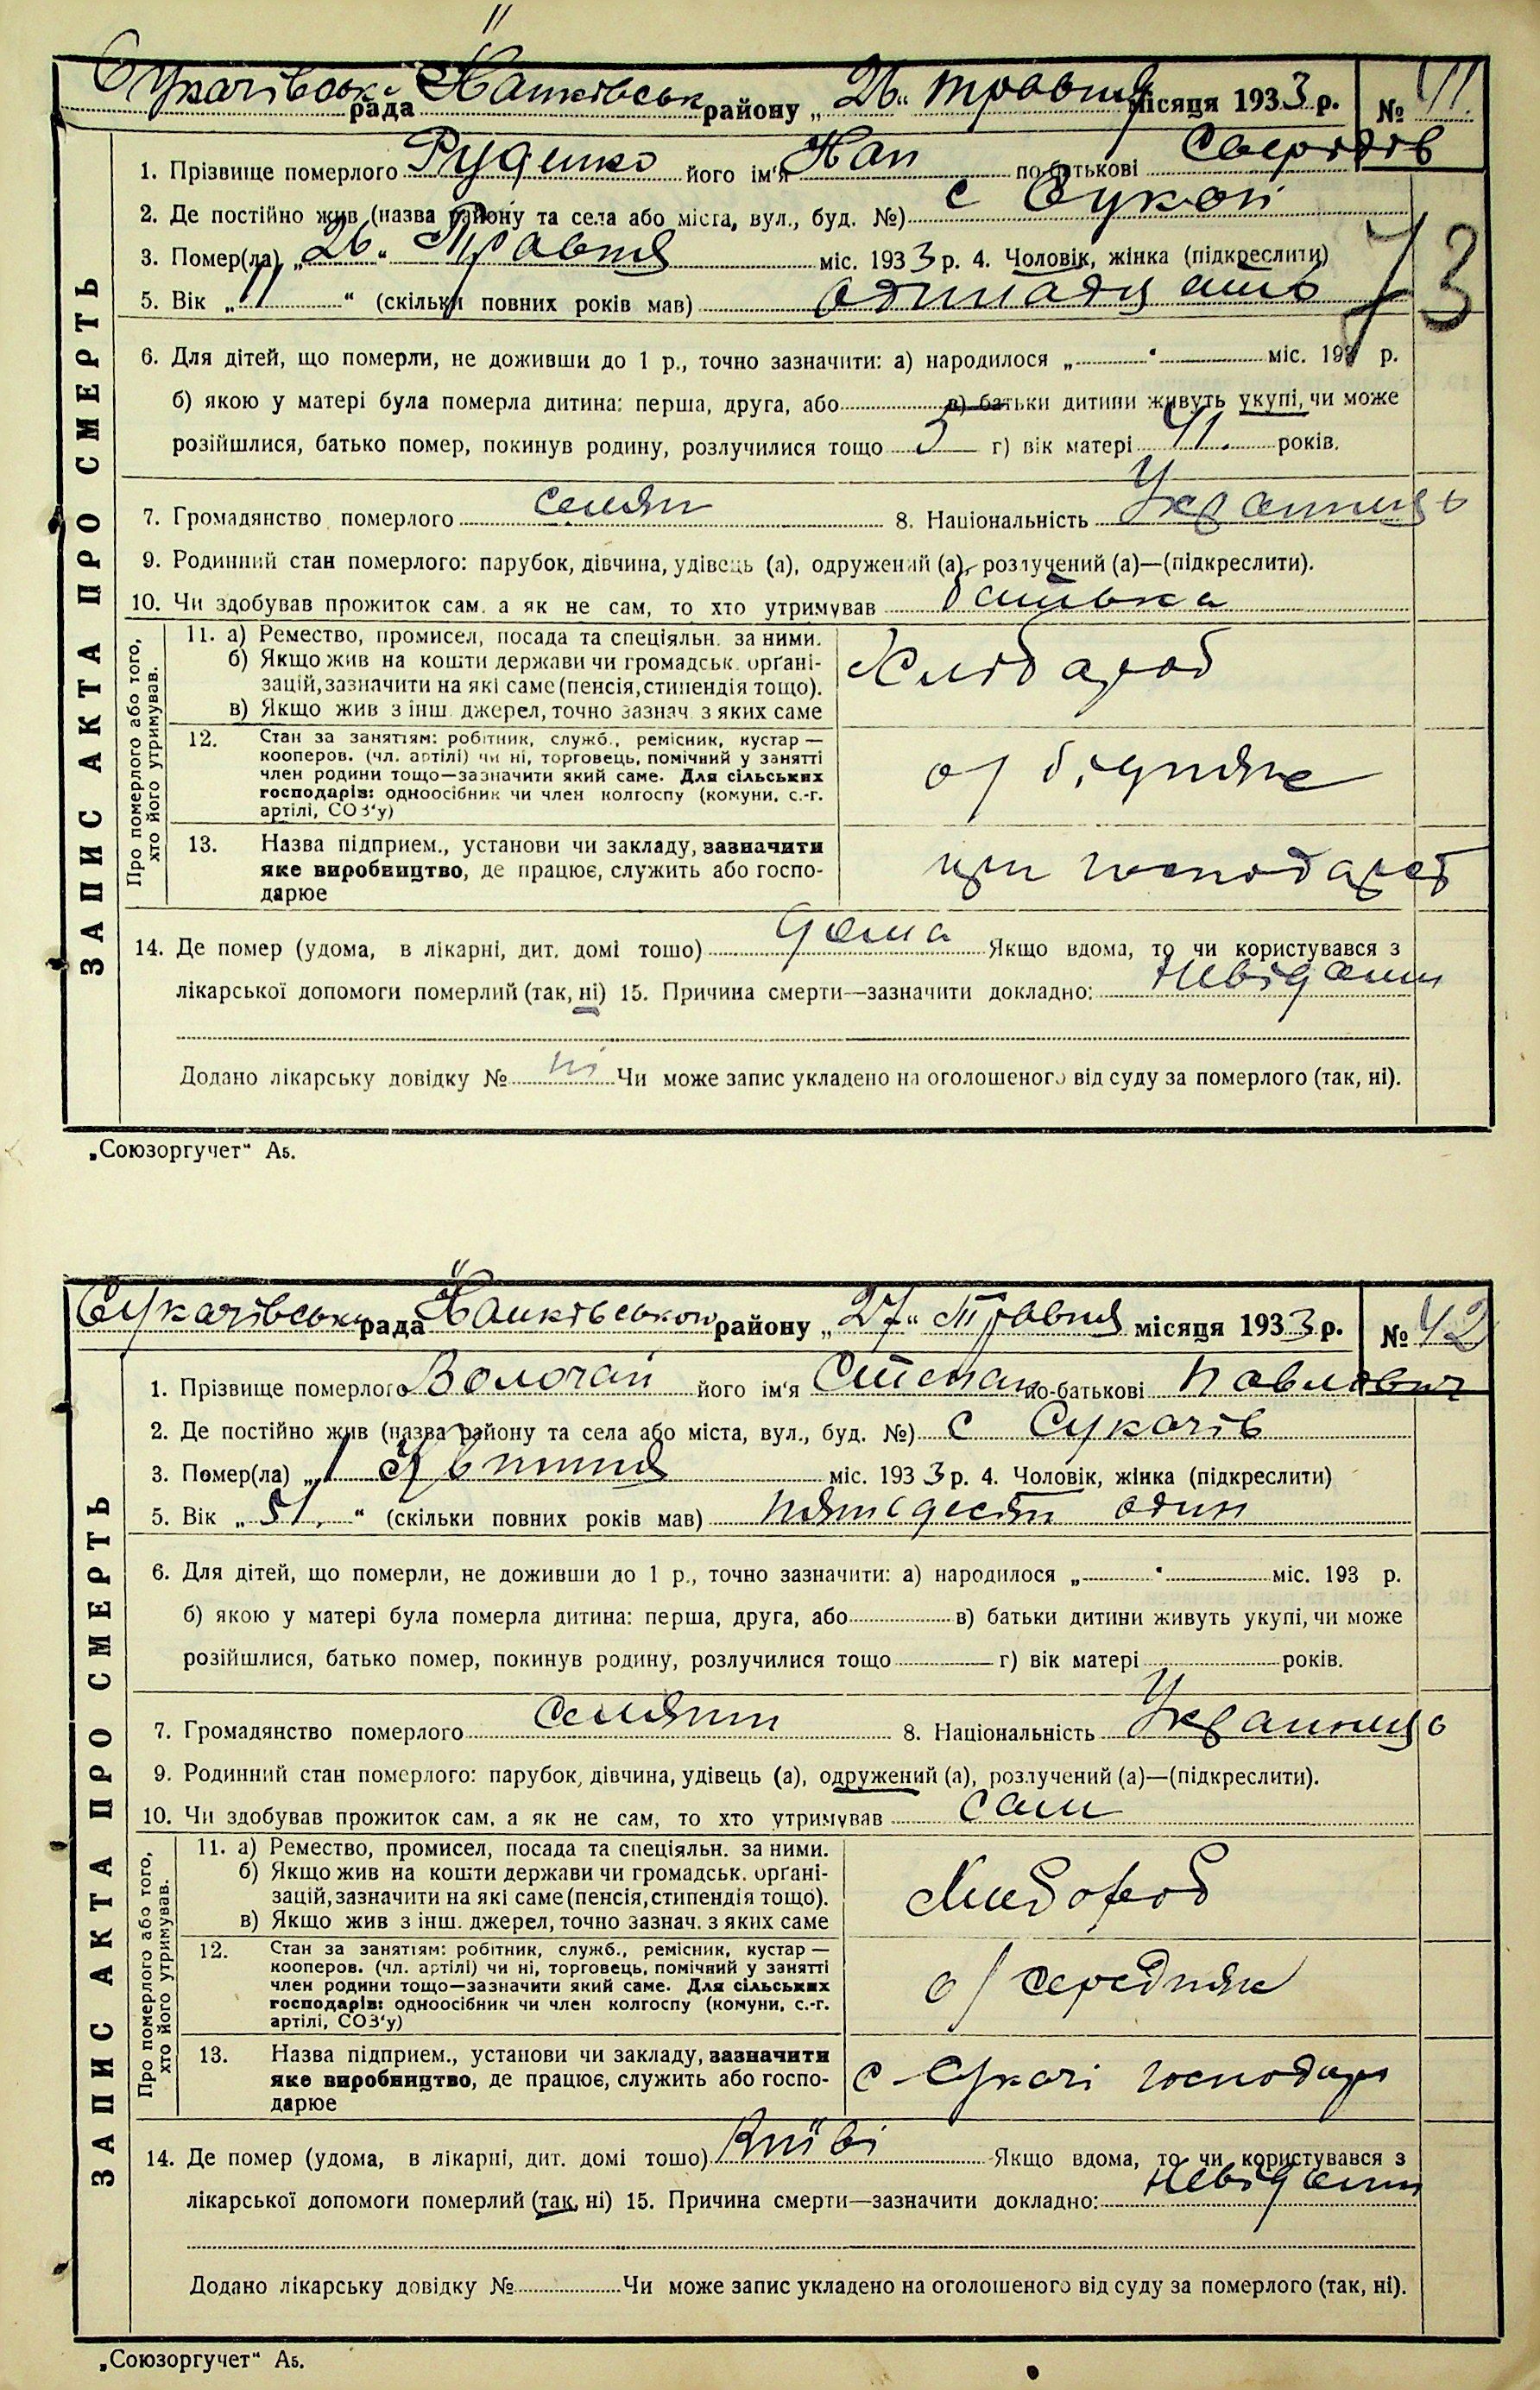 Сукачівськ рада Йанківськ району „26“ травня місяця 1933 р. № 41.
1. Прізвище померлого Руденко його ім'я по-батькові
2. Де постійно жив (назва району та села або міста, вул., буд. №) с
3. Помер(ла) „26“ Травня міс. 1933 р. 4. Чоловік, жінка (підкреслити)
73
5. Вік „11“ (скільки повних років мав) одинадцять
6. Для дітей, що померли, не доживши до 1 р., точно зазначити: а) народилося „ “ міс. 193 р.
б) якою у матері була померла дитина: перша, друга, або в) батьки дитини живуть укупі, чи може
розійшлися, батько помер, покинув родину, розлучилися тощо 3 г) вік матері 41. років.
7. Громадянство померлого селян 8. Національність Українець
9. Родинний стан померлого: парубок, дівчина, удівець (а), одружений (а), розлучений (а)—(підкреслити).
10. Чи здобував прожиток сам, а як не сам, то хто утримував батька
ЗАПИС АКТА ПРО СМЕРТЬ
Про померлого або того, хто його утримував.
11. а) Ремество, промисел, посада та спеціяльн. за ними.
б) Якщо жив на кошти держави чи громадськ. орґані-
зацій, зазначити на які саме (пенсія, стипендія тощо).
в) Якщо жив з інш. джерел, точно зазнач. з яких саме
Хлібароб
12. Стан за заняттям: робітник, служб., ремісник, кустар —
кооперов. (чл. артілі) чи ні, торговець, помічний у занятті
член родини тощо—зазначити який саме. Для сільських
господарів: одноосібник чи член колгоспу (комуни, с.-г.
артілі, СОЗ'у)
о/ бідняк
13. Назва підприєм., установи чи закладу, зазначити
яке виробництво, де працює, служить або госпо-
дарює
при господарст
14. Де помер (удома, в лікарні, дит. домі тощо) дома Якщо вдома, то чи користувався з
лікарської допомоги померлий (так, ні) 15. Причина смерти—зазначити докладно: Невідоми
Додано лікарську довідку № ні Чи може запис укладено на оголошеного від суду за померлого (так, ні).
„Союзоргучет“ А5.
Сукачівська рада Йанківського району „27“ Травня місяця 1933 р. № 42
1. Прізвище померлого Волочай його ім'я Степан по-батькові Павлович
2. Де постійно жив (назва району та села або міста, вул., буд. №) с Сукачів
3. Помер(ла) „1 Квітня міс. 1933 р. 4. Чоловік, жінка (підкреслити)
5. Вік „51.“ (скільки повних років мав) пятьдесят один
6. Для дітей, що померли, не доживши до 1 р., точно зазначити: а) народилося „ “ міс. 193 р.
б) якою у матері була померла дитина: перша, друга, або в) батьки дитини живуть укупі, чи може
розійшлися, батько помер, покинув родину, розлучилися тощо г) вік матері років.
7. Громадянство померлого селянин 8. Національність Українець
9. Родинний стан померлого: парубок, дівчина, удівець (а), одружений (а), розлучений (а)—(підкреслити).
10. Чи здобував прожиток сам, а як не сам, то хто утримував сам
ЗАПИС АКТА ПРО СМЕРТЬ
Про померлого або того, хто його утримував.
11. а) Ремество, промисел, посада та спеціяльн. за ними.
б) Якщо жив на кошти держави чи громадськ. орґані-
зацій, зазначити на які саме (пенсія, стипендія тощо).
в) Якщо жив з інш. джерел, точно зазнач. з яких саме
Хлібороб
12. Стан за заняттям: робітник, служб., ремісник, кустар —
кооперов. (чл. артілі) чи ні, торговець, помічний у занятті
член родини тощо—зазначити який саме. Для сільських
господарів: одноосібник чи член колгоспу (комуни, с.-г.
артілі, СОЗ'у)
о/ середняк
13. Назва підприєм., установи чи закладу, зазначити
яке виробництво, де працює, служить або госпо-
дарює
с Сукачі господар
14. Де помер (удома, в лікарні, дит. домі тощо) Київі Якщо вдома, то чи користувався з
лікарської допомоги померлий (так, ні) 15. Причина смерти—зазначити докладно: Невідоми
Додано лікарську довідку № Чи може запис укладено на оголошеного від суду за померлого (так, ні).
„Союзоргучет“ А5.